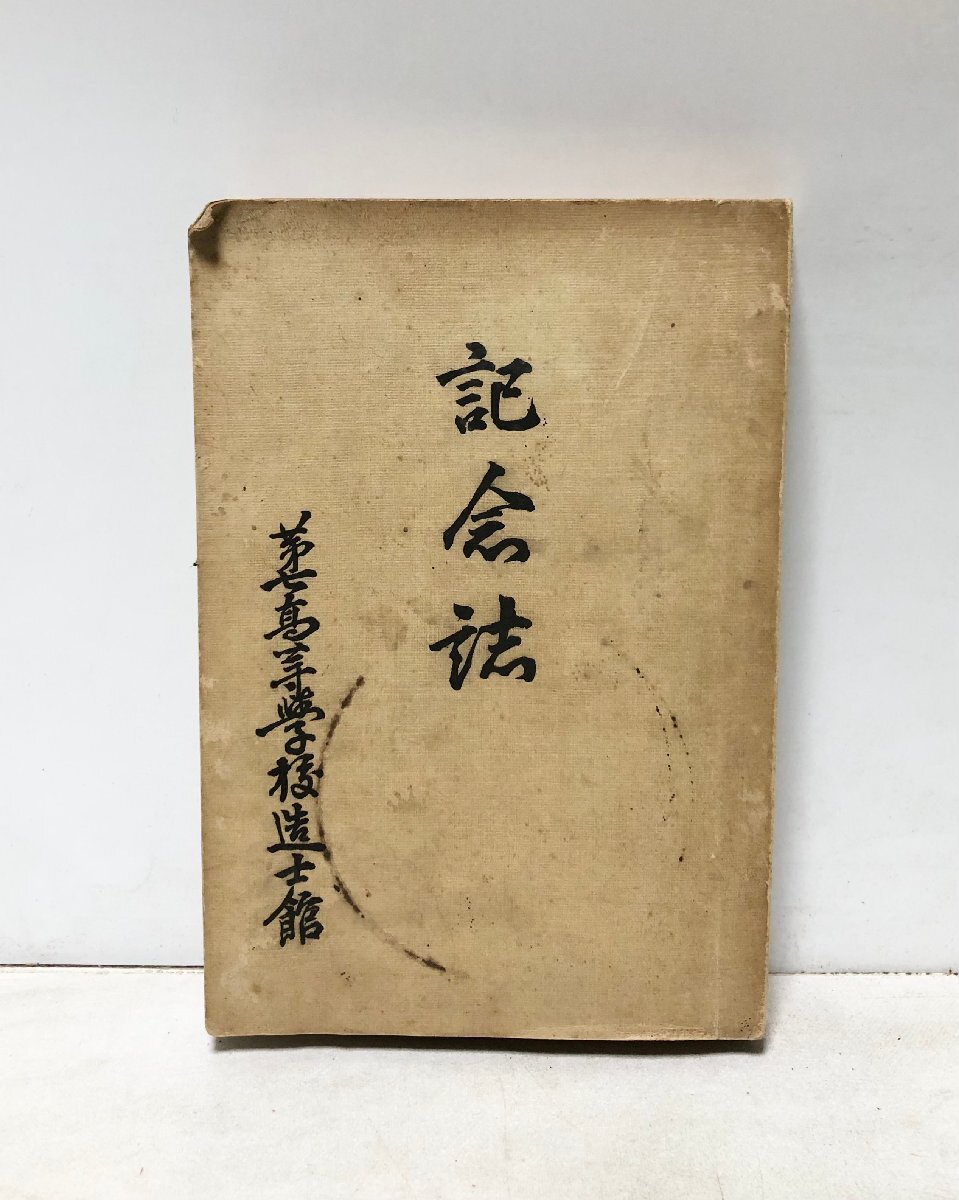 記念誌
第七高等學校造士館